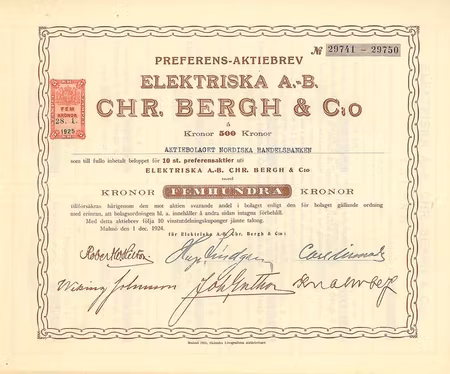 PREFERENS-AKTIEBREV
№ 29741 - 29750
ELEKTRISKA A.-B.
CHR. BERGH & C:o
FEM
KRONOR
28. 1.
1925
á
Kronor 500 Kronor
AKTIEBOLAGET NORDISKA HANDELSBANKEN
som till fullo inbetalt beloppet för 10 st. preferensaktier uti
ELEKTRISKA A.-B. CHR. BERGH & C:o
KRONOR FEMHUNDRA KRONOR
tillförsäkras härigenom den mot aktien svarande andel i bolaget enligt den för bolaget gällande ordning
med erinran, att bolagsordningen bl. a. innehåller å andra sidan intagna förbehåll.
Med detta aktiebrev följa 10 vinstutdelningskuponger jämte talong.
Malmö den 1 dec. 1924.
för Elektriska A.-B. Chr. Bergh & C:o: